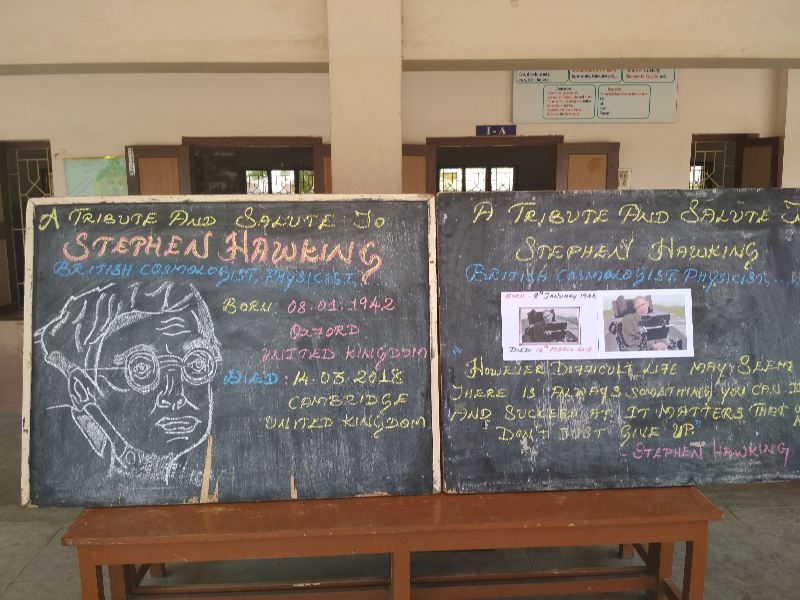 I-A
A TRIBUTE AND SALUTE TO
STEPHEN HAWKING
BRITISH COSMOLOGIST, PHYSICIST,
BORN: 08.01.1942
OXFORD
UNITED KINGDOM
DIED: 14.03.2018
CAMBRIDGE
UNITED KINGDOM
A TRIBUTE AND SALUTE
STEPHEN HAWKING
BRITISH COSMOLOGIST, PHYSICIST, ...
BORN - 8TH JANUARY 1942
DIED: 14TH MARCH 2018
"HOWEVER DIFFICULT LIFE MAY SEEM
THERE IS ALWAYS SOMETHING YOU CAN
AND SUCCEED AT. IT MATTERS THAT
DON'T JUST GIVE UP."
- STEPHEN HAWKING